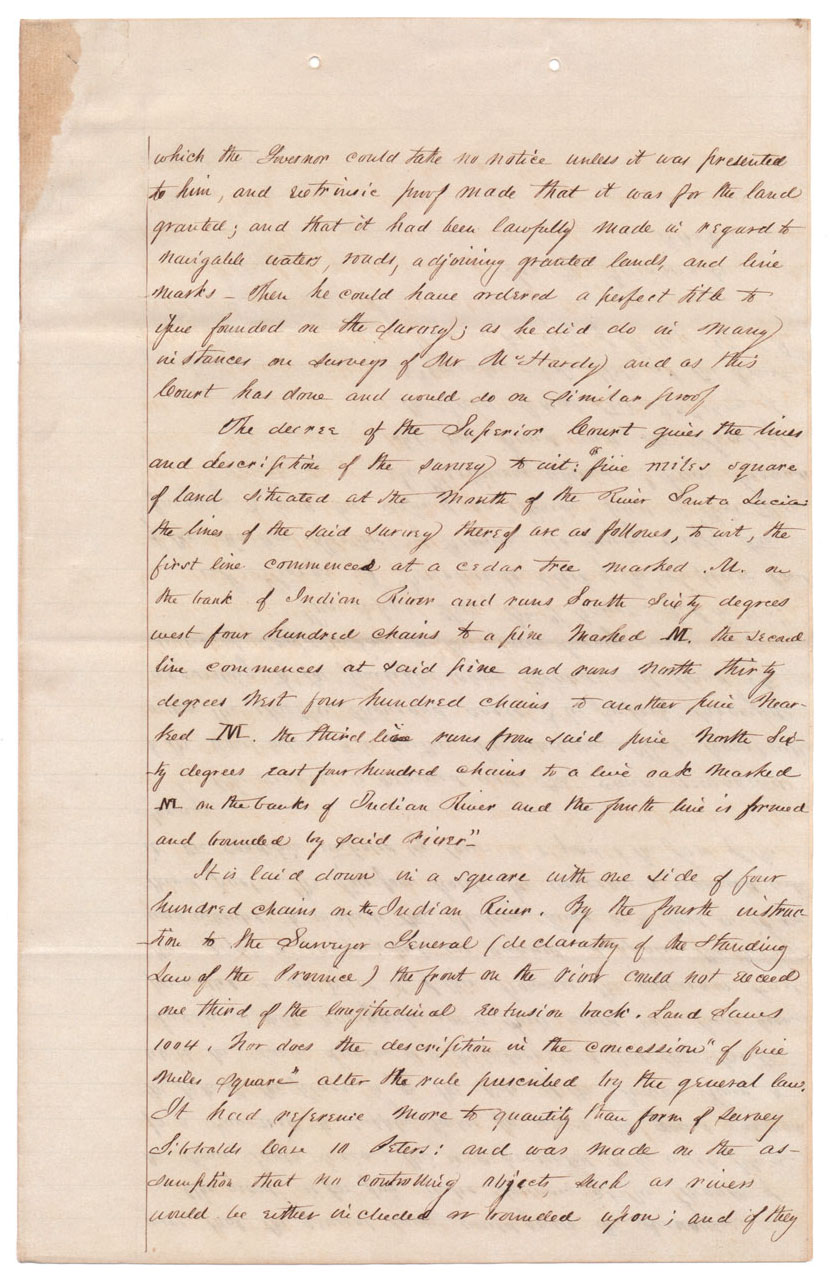 which the Governor could take no notice unless it was presented
to him, and extrinsic proof made that it was for the land
granted; and that it had been lawfully made in regard to
navigable waters, roads, adjoining granted lands, and line
marks – Then he could have ordered a perfect title to
issue founded on the survey; as he did do in many
instances on surveys of Mr McHardy and as this
Court has done and would do on similar proof
The decree of the Superior Court gives the lines
and description of the survey to wit: "five miles square
of land situated at the Mouth of the River Santa Lucia
the lines of the said survey thereof are as follows, to wit, the
first line commenced at a cedar tree marked .M. on
the bank of Indian River and runs South Sixty degrees
west four hundred chains to a pine marked M. the second
line commences at said pine and runs North thirty
degrees West four hundred chains to another pine Mar-
ked M. the third line runs from said pine North Six-
ty degrees east four hundred chains to a live oak marked
M on the banks of Indian River and the fourth line is formed
and bounded by said River"
It is laid down in a square with one side of four
hundred chains on the Indian River. By the fourth instruc
tion to the Surveyor General (declaratory of the Standing
Law of the Province) the front on the river could not exceed
one third of the longitudinal extension back. Land Laws
1004. Nor does the description in the concession "of five
miles square" alter the rule prescribed by the general law.
It had reference more to quantity than form of survey
Sibbalds Case 10 Peters: and was made on the as-
sumption that no controlling objects such as rivers
would be either included or bounded upon; and if they